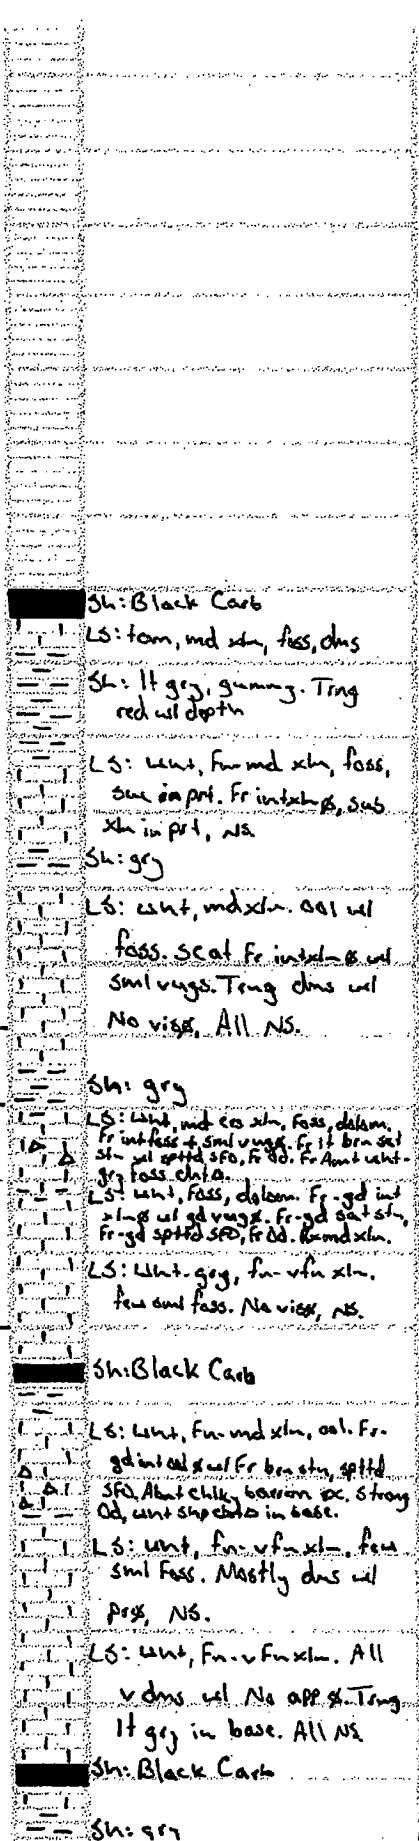 Sh: Black Carb
LS: tan, md xln, foss, dns
Sh: lt gry, gummy. Trng
red w/ depth
LS: wht, Fn-md xln, foss,
in prt. Fr intxln ø, suc
xln in prt, NS.
Sh: gry
LS: wht, md xln. ool w/
foss. scat Fr intxln ø w/
sml vugs. Trng dns w/
No vis ø, All NS.
Sh: gry
LS: wht, md xln, Foss, dolom.
Fr intfoss + sml vug ø. Fr lt brn sat
stn w/ spttd SFO, Fr Od. Fr Amt wht-
gry foss chts.
LS: wht, Foss, dolom. Fr-gd int
xln ø w/ gd vug ø. Fr-gd sat stn,
Fr-gd spttd SFO, Fr Od. md xln.
LS: wht-gry, fn-vfn xln.
few sml foss. No vis ø, NS.
Sh: Black Carb
LS: wht, Fn-md xln, ool. Fr-
gd int ool ø w/ Fr brn stn, spttd
SFO, Abnt chlky barren ox. Strong
Od, wht shp chts in base.
LS: wht, fn-vfn xln, few
sml Foss. Mostly dns w/
pr ø, NS.
LS: wht, Fn-vFn xln. All
v dns w/ No app ø. Trng
lt gry in base. All NS
Sh: Black Carb
Sh: gry